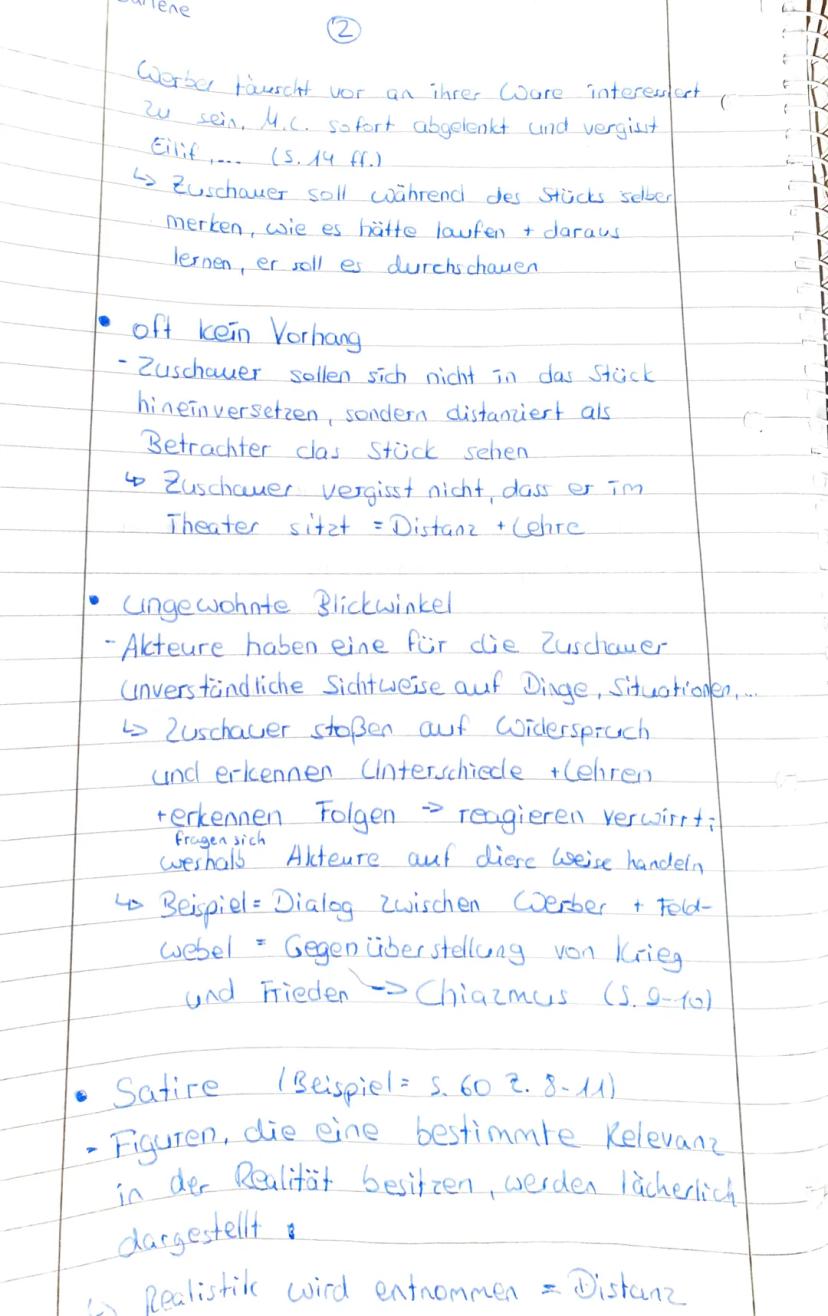 ②
Werber täuscht vor an ihrer Ware interessiert
zu sein, M.C. sofort abgelenkt und vergisst
Eilif,... (S. 14 ff.)
↳ Zuschauer soll während des Stücks selber
merken, wie es hätte laufen + daraus
lernen, er soll es durchschauen
• oft kein Vorhang
- Zuschauer sollen sich nicht in das Stück
hineinversetzen, sondern distanziert als
Betrachter das Stück sehen
↳ Zuschauer vergisst nicht, dass er im
Theater sitzt = Distanz + Lehre
• ungewohnte Blickwinkel
- Akteure haben eine für die Zuschauer
unverständliche Sichtweise auf Dinge, Situationen,...
↳ Zuschauer stoßen auf Widerspruch
und erkennen Unterschiede + Lehren
+ erkennen Folgen -> reagieren verwirrt;
fragen sich
weshalb Akteure auf diese Weise handeln
↳ Beispiel = Dialog zwischen Werber + Feld-
webel = Gegenüberstellung von Krieg
und Frieden -> Chiazmus (S. 9-10)
• Satire (Beispiel = S. 60 Z. 8-11)
- Figuren, die eine bestimmte Relevanz
in der Realität besitzen, werden lächerlich
dargestellt
↳ Realistik wird entnommen = Distanz